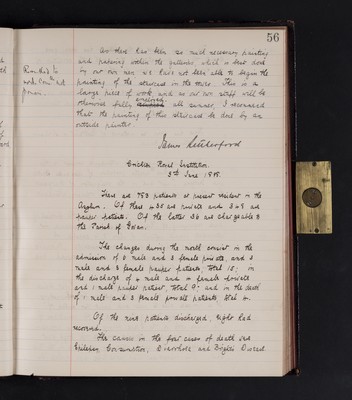 56
As there has been so much necessary painting
and papering within the galleries which is best done
by our own men we have not been able to begin the
painting of the staircase in the tower. This is a
large piece of work and as our own staff will be
otherwise fully employed all summer, I recommend
that the painting of this staircase be done by an
outside painter.
James Rutherford
Crichton Royal Institution.
5th June 1905.
There are 783 patients at present resident in the
Asylum. Of these are private and are
pauper patients. Of the latter 36 are chargeable to
the Parish of Govan.
The changes during the month consist in the
admission of male and 3 female private, and 3
male and 3 female pauper patients, total 15; in
the discharge of 4 male and 4 female private
and 1 male pauper patient, total 9; and in the death
of 1 male and 3 female private patients, total 4.
Of the nine patients discharged, eight had
recovered.
The causes in the four cases of death were
Epilepsy, Consumption, Diarrhoea and Bright's Disease.